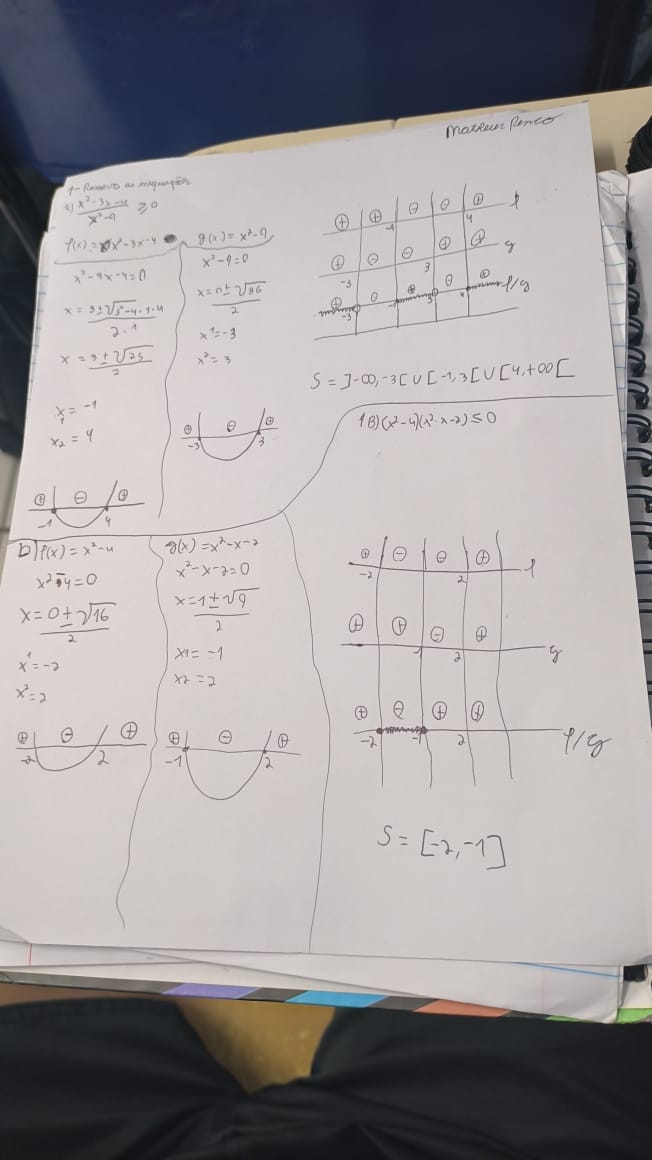 Matheus
1- Resolva as inequações
a) x²-3x-4 / x²-9 ≥ 0
f(x) = x²-3x-4
x²-3x-4=0
x = 3±√3²-4·1·4 / 2·1
x = 3±√25 / 2
x₁ = -1
x₂ = 4
⊕ ⊖ ⊕
-1 4
g(x) = x²-9
x²-9=0
x = 0±√36 / 2
x¹=-3
x²= 3
⊕ ⊖ ⊕
-3 3
⊕ ⊕ ⊖ ⊖ ⊕ f
-1 4
⊕ ⊖ ⊖ ⊕ ⊕ g
-3 3
⊕ ⊖ ⊕ ⊖ ⊕ f/g
-3 -1 3 4
S = ]-∞,-3[ ∪ [-1,3[ ∪ [4,+∞[
1B) (x²-4)(x²-x-2) ≤ 0
b) f(x) = x²-4
x²-4=0
x = 0±√16 / 2
x¹=-2
x²=2
⊕ ⊖ ⊕
-2 2
g(x) = x²-x-2
x²-x-2=0
x = 1±√9 / 2
x1= -1
x2 =2
⊕ ⊖ ⊕
-1 2
⊕ ⊖ ⊖ ⊕ f
-2 2
⊕ ⊕ ⊖ ⊕ g
-1 2
⊕ ⊖ ⊕ ⊕ f/g
-2 -1 2
S = [-2,-1]